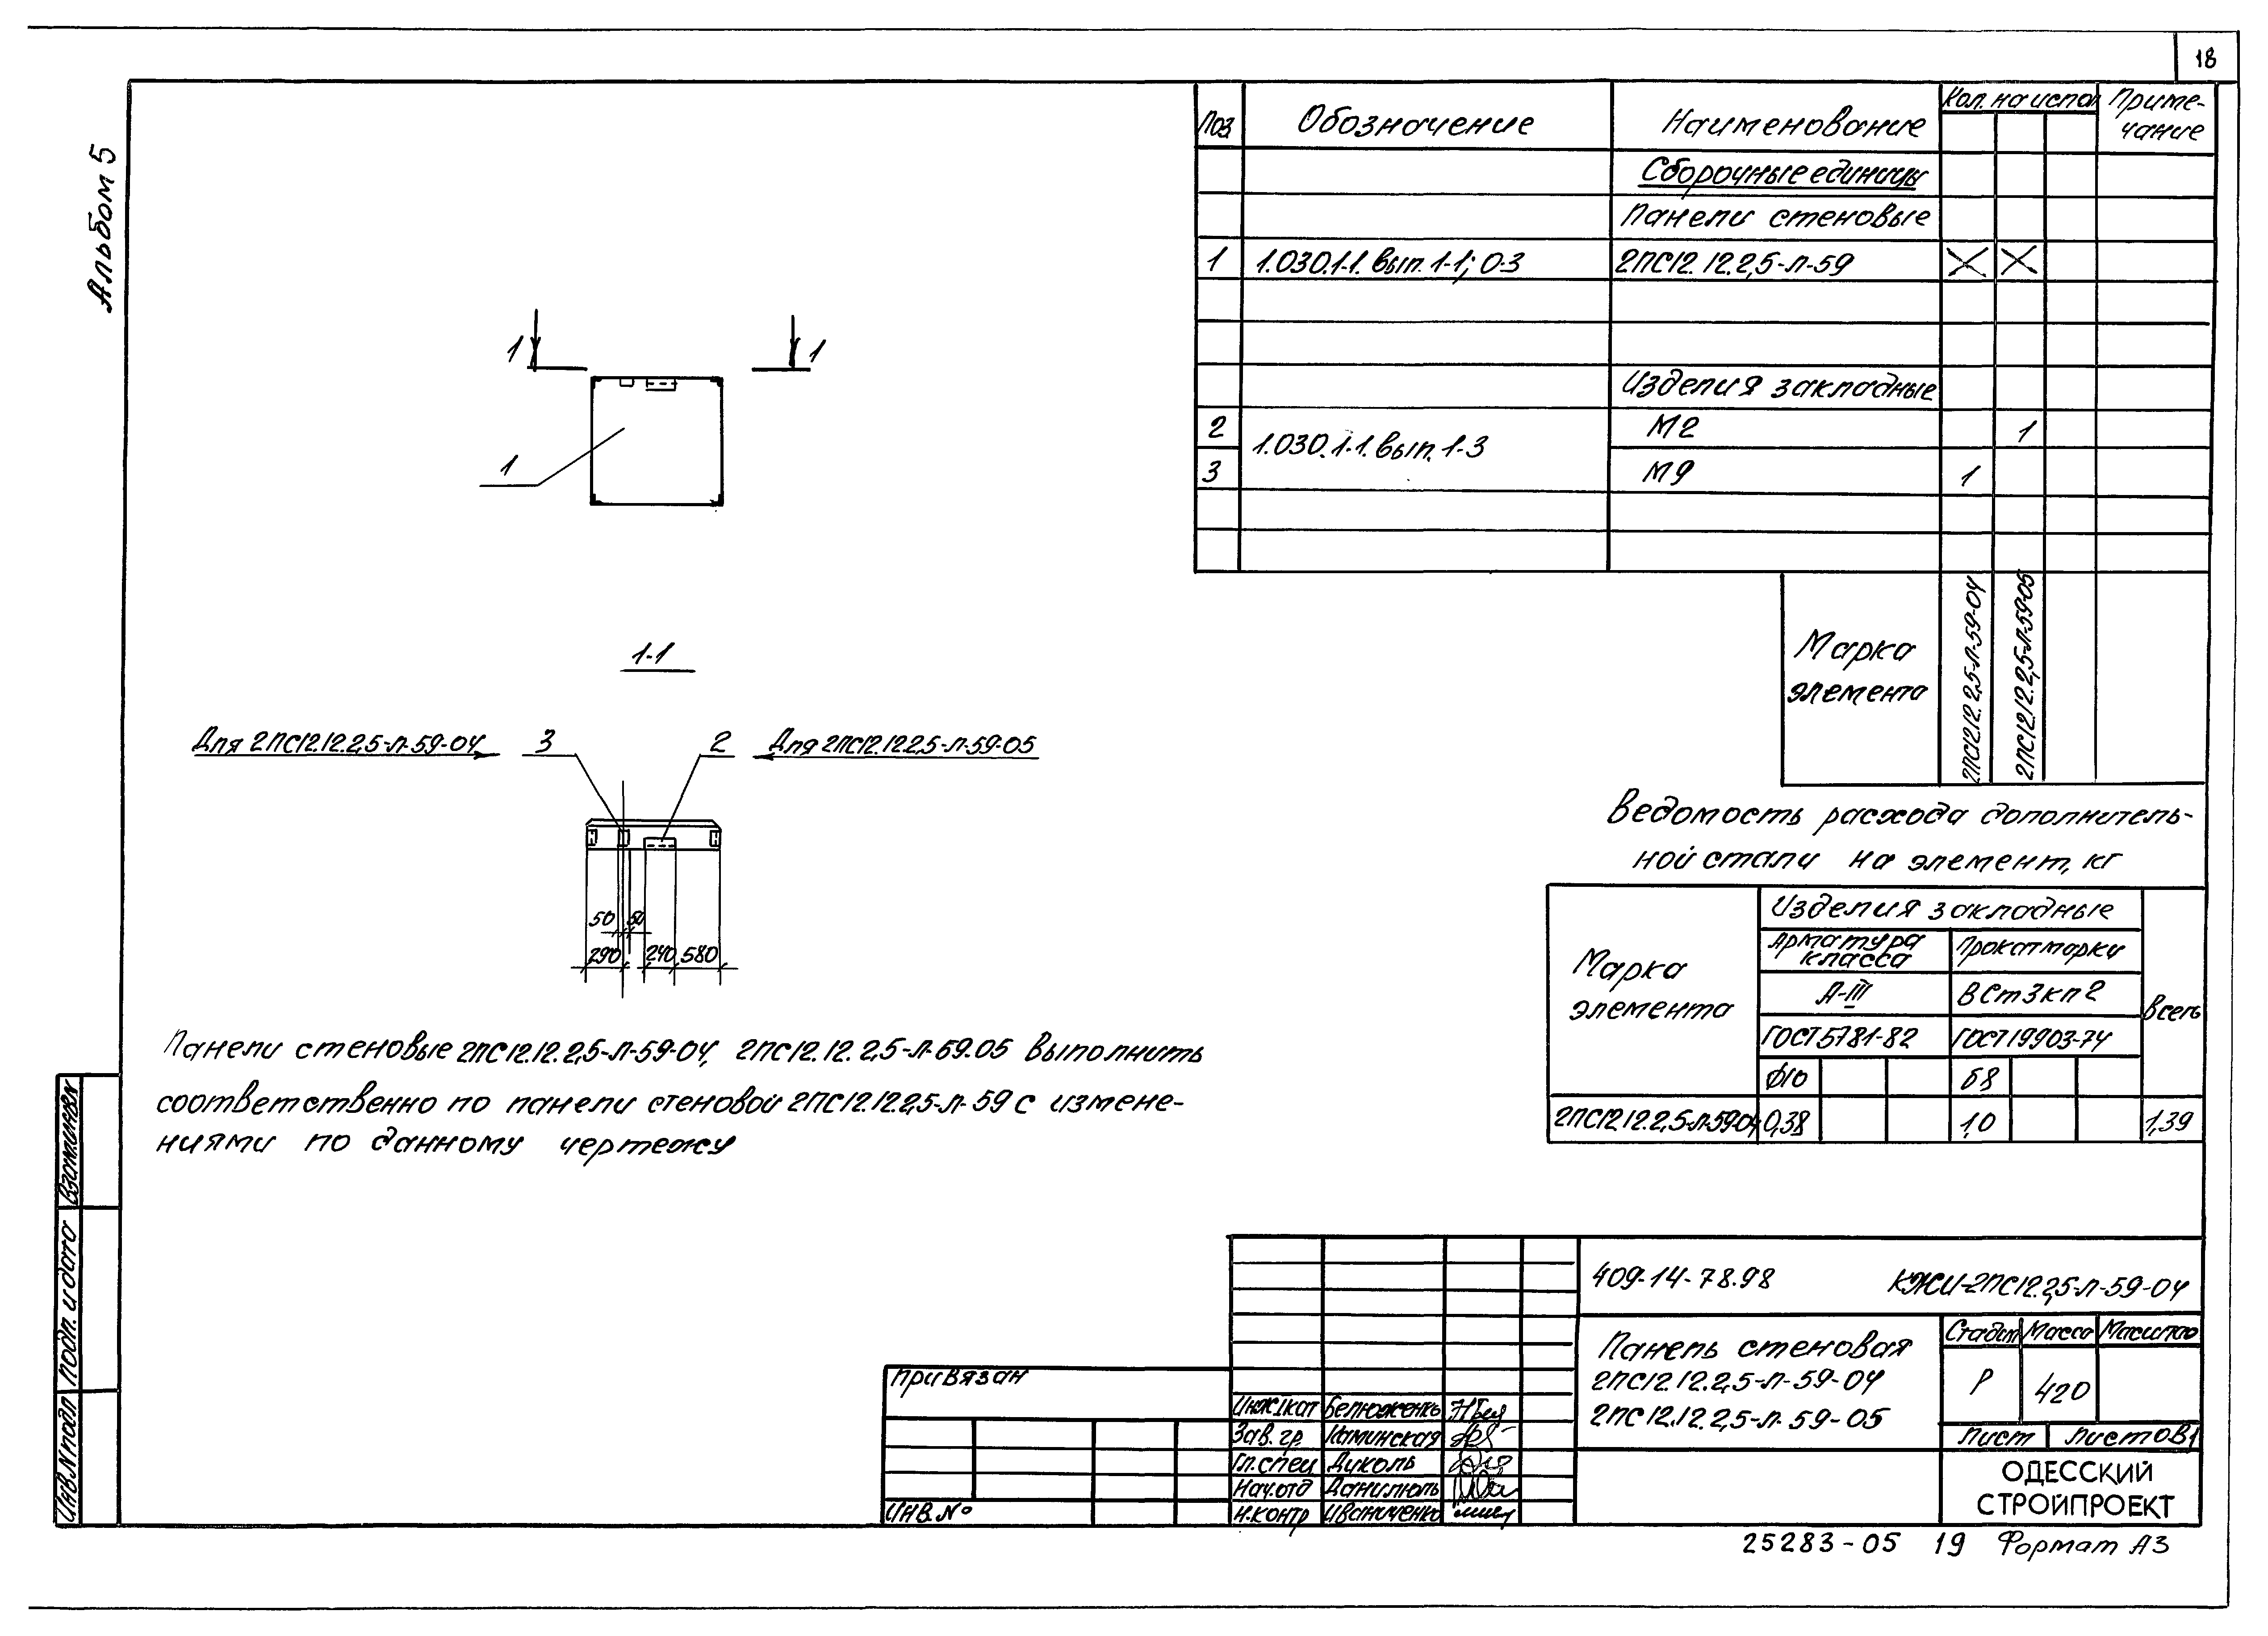 18
Альбом 5
Поз
Обозначение
Наименование
Кол. на испол
Приме-
чание
Сборочные единицы
Панели стеновые
1
1.030.1-1. вып. 1-1; 0-3
2ПС12.12.2,5-Л-59
Изделия закладные
2
1.030.1-1. вып. 1-3
М2
1
3
М9
1
Марка
элемента
2ПС12.12.2,5-Л-59-04
2ПС12.12.2,5-Л-59-05
1
1
1
1-1
Для 2ПС12.12.2,5-Л-59-04
3
2
Для 2ПС12.12.2,5-Л-59-05
50
50
290
240
580
Панели стеновые 2ПС12.12.2,5-Л-59-04, 2ПС12.12.2,5-Л-59.05 выполнить
соответственно по панели стеновой 2ПС12.12.2,5-Л-59 с измене-
ниями по данному чертежу
Ведомость расхода дополнитель-
ной стали на элемент, кг
Марка
элемента
Изделия закладные
Арматура
класса
Прокат марки
А-III
ВСт3кп2
Всего
ГОСТ 5781-82
ГОСТ 19903-74
Ф10
δ8
2ПС12.12.2,5-Л-59-04
0,38
1,0
1,39
409-14-78.98
КЖИ-2ПС12.2,5-Л-59-04
Панель стеновая
2ПС12.12.2,5-Л-59-04
2ПС12.12.2,5-Л.59-05
Стадия
Масса
Масштаб
Р
420
Лист
Листов 1
ОДЕССКИЙ
СТРОЙПРОЕКТ
Привязан
Инв.№
Инж Iкат
Зав. гр.
Каминская
Гл.спец
Дуколь
Нач.отд
Н.контр
Иваниченко
Взам.инв.N
Подп. и дата
Инв.Nподл
25283-05 19 Формат А3